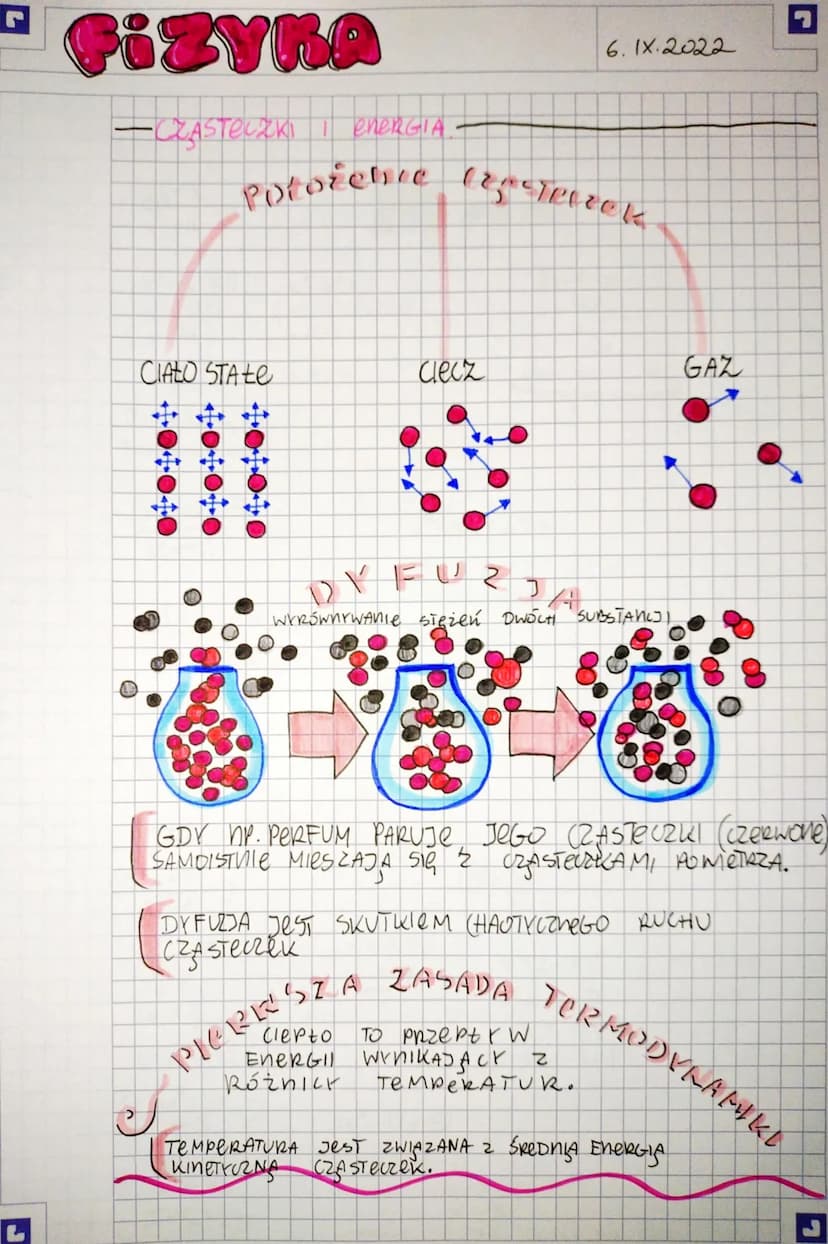 FiZYKA
6.IX.2022
CZĄSTECZKI I ENERGIA.
POŁOŻENIE CZĄSTECZEK
CIAŁO STAŁE
CIECZ
GAZ
DYFUZJA
WYRÓWNYWANIE STĘŻEŃ DWÓCH SUBSTANCJI
GDY NP. PERFUM PARUJE JEGO CZĄSTECZKI (CZERWONE)
SAMOISTNIE MIESZAJĄ SIĘ Z CZĄSTECZKAMI POWIETRZA.
DYFUZJA JEST SKUTKIEM CHAOTYCZNEGO RUCHU
CZĄSTECZEK
PIERWSZA ZASADA TERMODYNAMIKI
CIEPŁO TO PRZEPŁYW
ENERGII WYNIKAJĄCY Z
RÓŻNICY TEMPERATUR.
TEMPERATURA JEST ZWIĄZANA Z ŚREDNIĄ ENERGIĄ
KINETYCZNĄ CZĄSTECZEK.